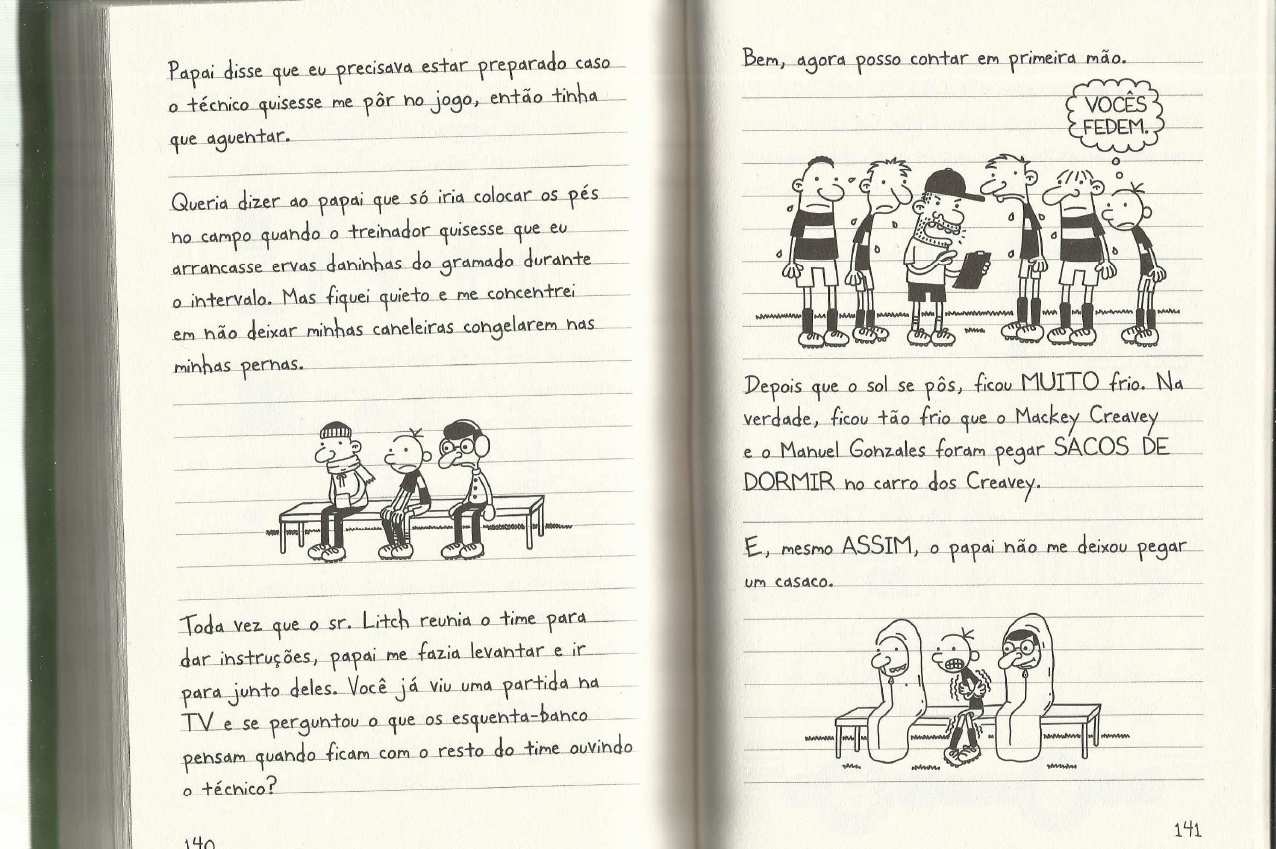 Papai disse que eu precisava estar preparado caso
o técnico quisesse me pôr no jogo, então tinha
que aguentar.
Queria dizer ao papai que só iria colocar os pés
no campo quando o treinador quisesse que eu
arrancasse ervas daninhas do gramado durante
o intervalo. Mas fiquei quieto e me concentrei
em não deixar minhas caneleiras congelarem nas
minhas pernas.
Toda vez que o sr. Litch reunia o time para
dar instruções, papai me fazia levantar e ir
para junto deles. Você já viu uma partida na
TV e se perguntou o que os esquenta-banco
pensam quando ficam com o resto do time ouvindo
o técnico?
140
Bem, agora posso contar em primeira mão.
VOCÊS
FEDEM.
Depois que o sol se pôs, ficou MUITO frio. Na
verdade, ficou tão frio que o Mackey Creavey
e o Manuel Gonzales foram pegar SACOS DE
DORMIR no carro dos Creavey.
E, mesmo ASSIM, o papai não me deixou pegar
um casaco.
141